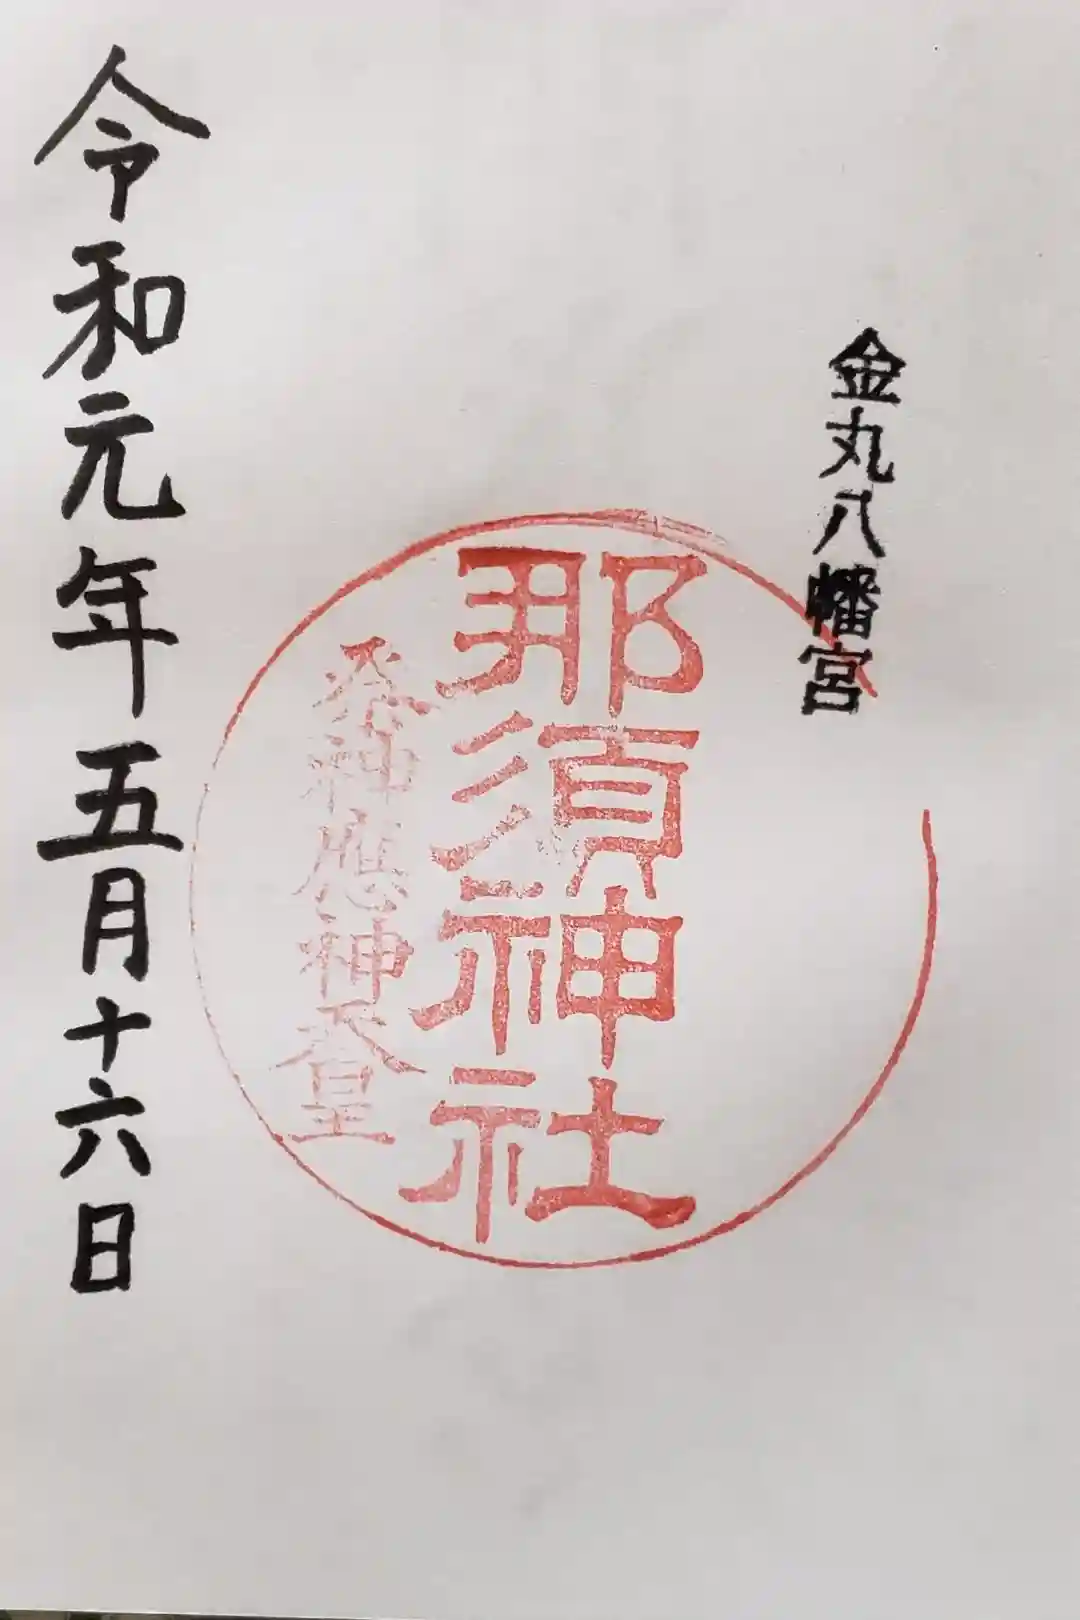 金丸八幡宮
那須神社
祭神應神天皇
令和元年五月十六日